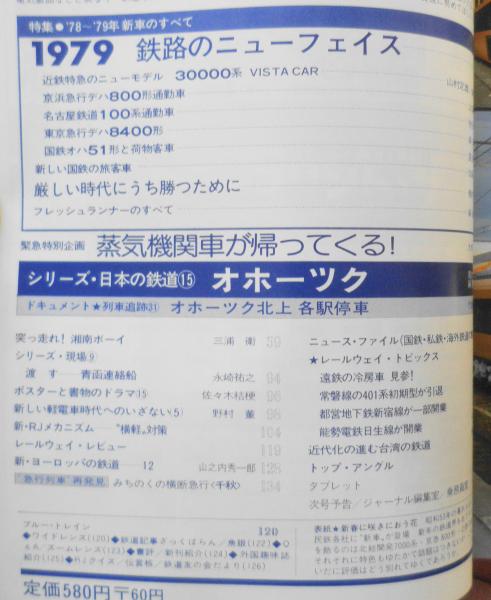 特集●'78〜'79年 新車のすべて
1979 鉄路のニューフェイス
近鉄特急のニューモデル 30000系 VISTA CAR
京浜急行デハ800形通勤車
名古屋鉄道100系通勤車
東京急行デハ8400形
国鉄オハ51形と荷物客車
新しい国鉄の旅客車
厳しい時代にうち勝つために
フレッシュランナーのすべて
緊急特別企画 蒸気機関車が帰ってくる!
シリーズ・日本の鉄道⑮ オホーツク
ドキュメント★列車追跡㉛ オホーツク北上 各駅停車
突っ走れ! 湘南ボーイ 三浦 衛 59
シリーズ・現場⑨
渡 す——青函連絡船 永崎祐之 94
ポスターと書物のドラマ⑮ 佐々木桔梗 96
新しい軽電車時代へのいざない(5) 野村 董 98
新・RJメカニズム——"横軽"対策 104
レールウェイ・レビュー 119
新・ヨーロッパの鉄道——12 山之内秀一郎 128
"急行列車"再発見 みちのくの横断急行<千秋> 134
ニュース・ファイル(国鉄・私鉄・海外鉄道
★レールウェイ・トピックス
遠鉄の冷房車 見参!
常磐線の401系初期型が引退
都営地下鉄新宿線が一部開業
能勢電鉄日生線が開業
近代化の進む台湾の鉄道
トップ・アングル
タブレット
次号予告/ジャーナル編集室/乗務員室
ブルー・トレイン 120
◆ワイドレンズ(120)◆鉄道記事ざっくばらん/魚眼(122)◆O
&A/ズームレンズ(123)◆書評/新刊紹介(124)◆外国趣味誌
紹介(125)◆RJクイズ/伝言板/鉄道友の会だより(126)
表紙★新春に咲きにおう花
民鉄各社に"新車"が登場
定価580円〒60円